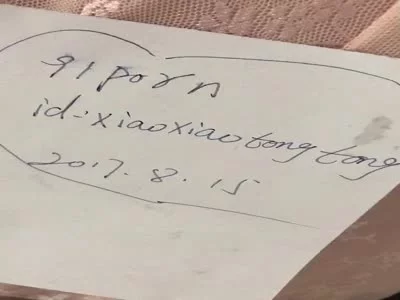 91porn
id:xiaoxiaotongtong
2017.8.15